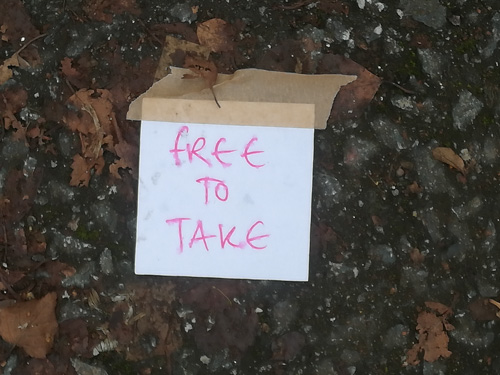 FREE
TO
TAKE